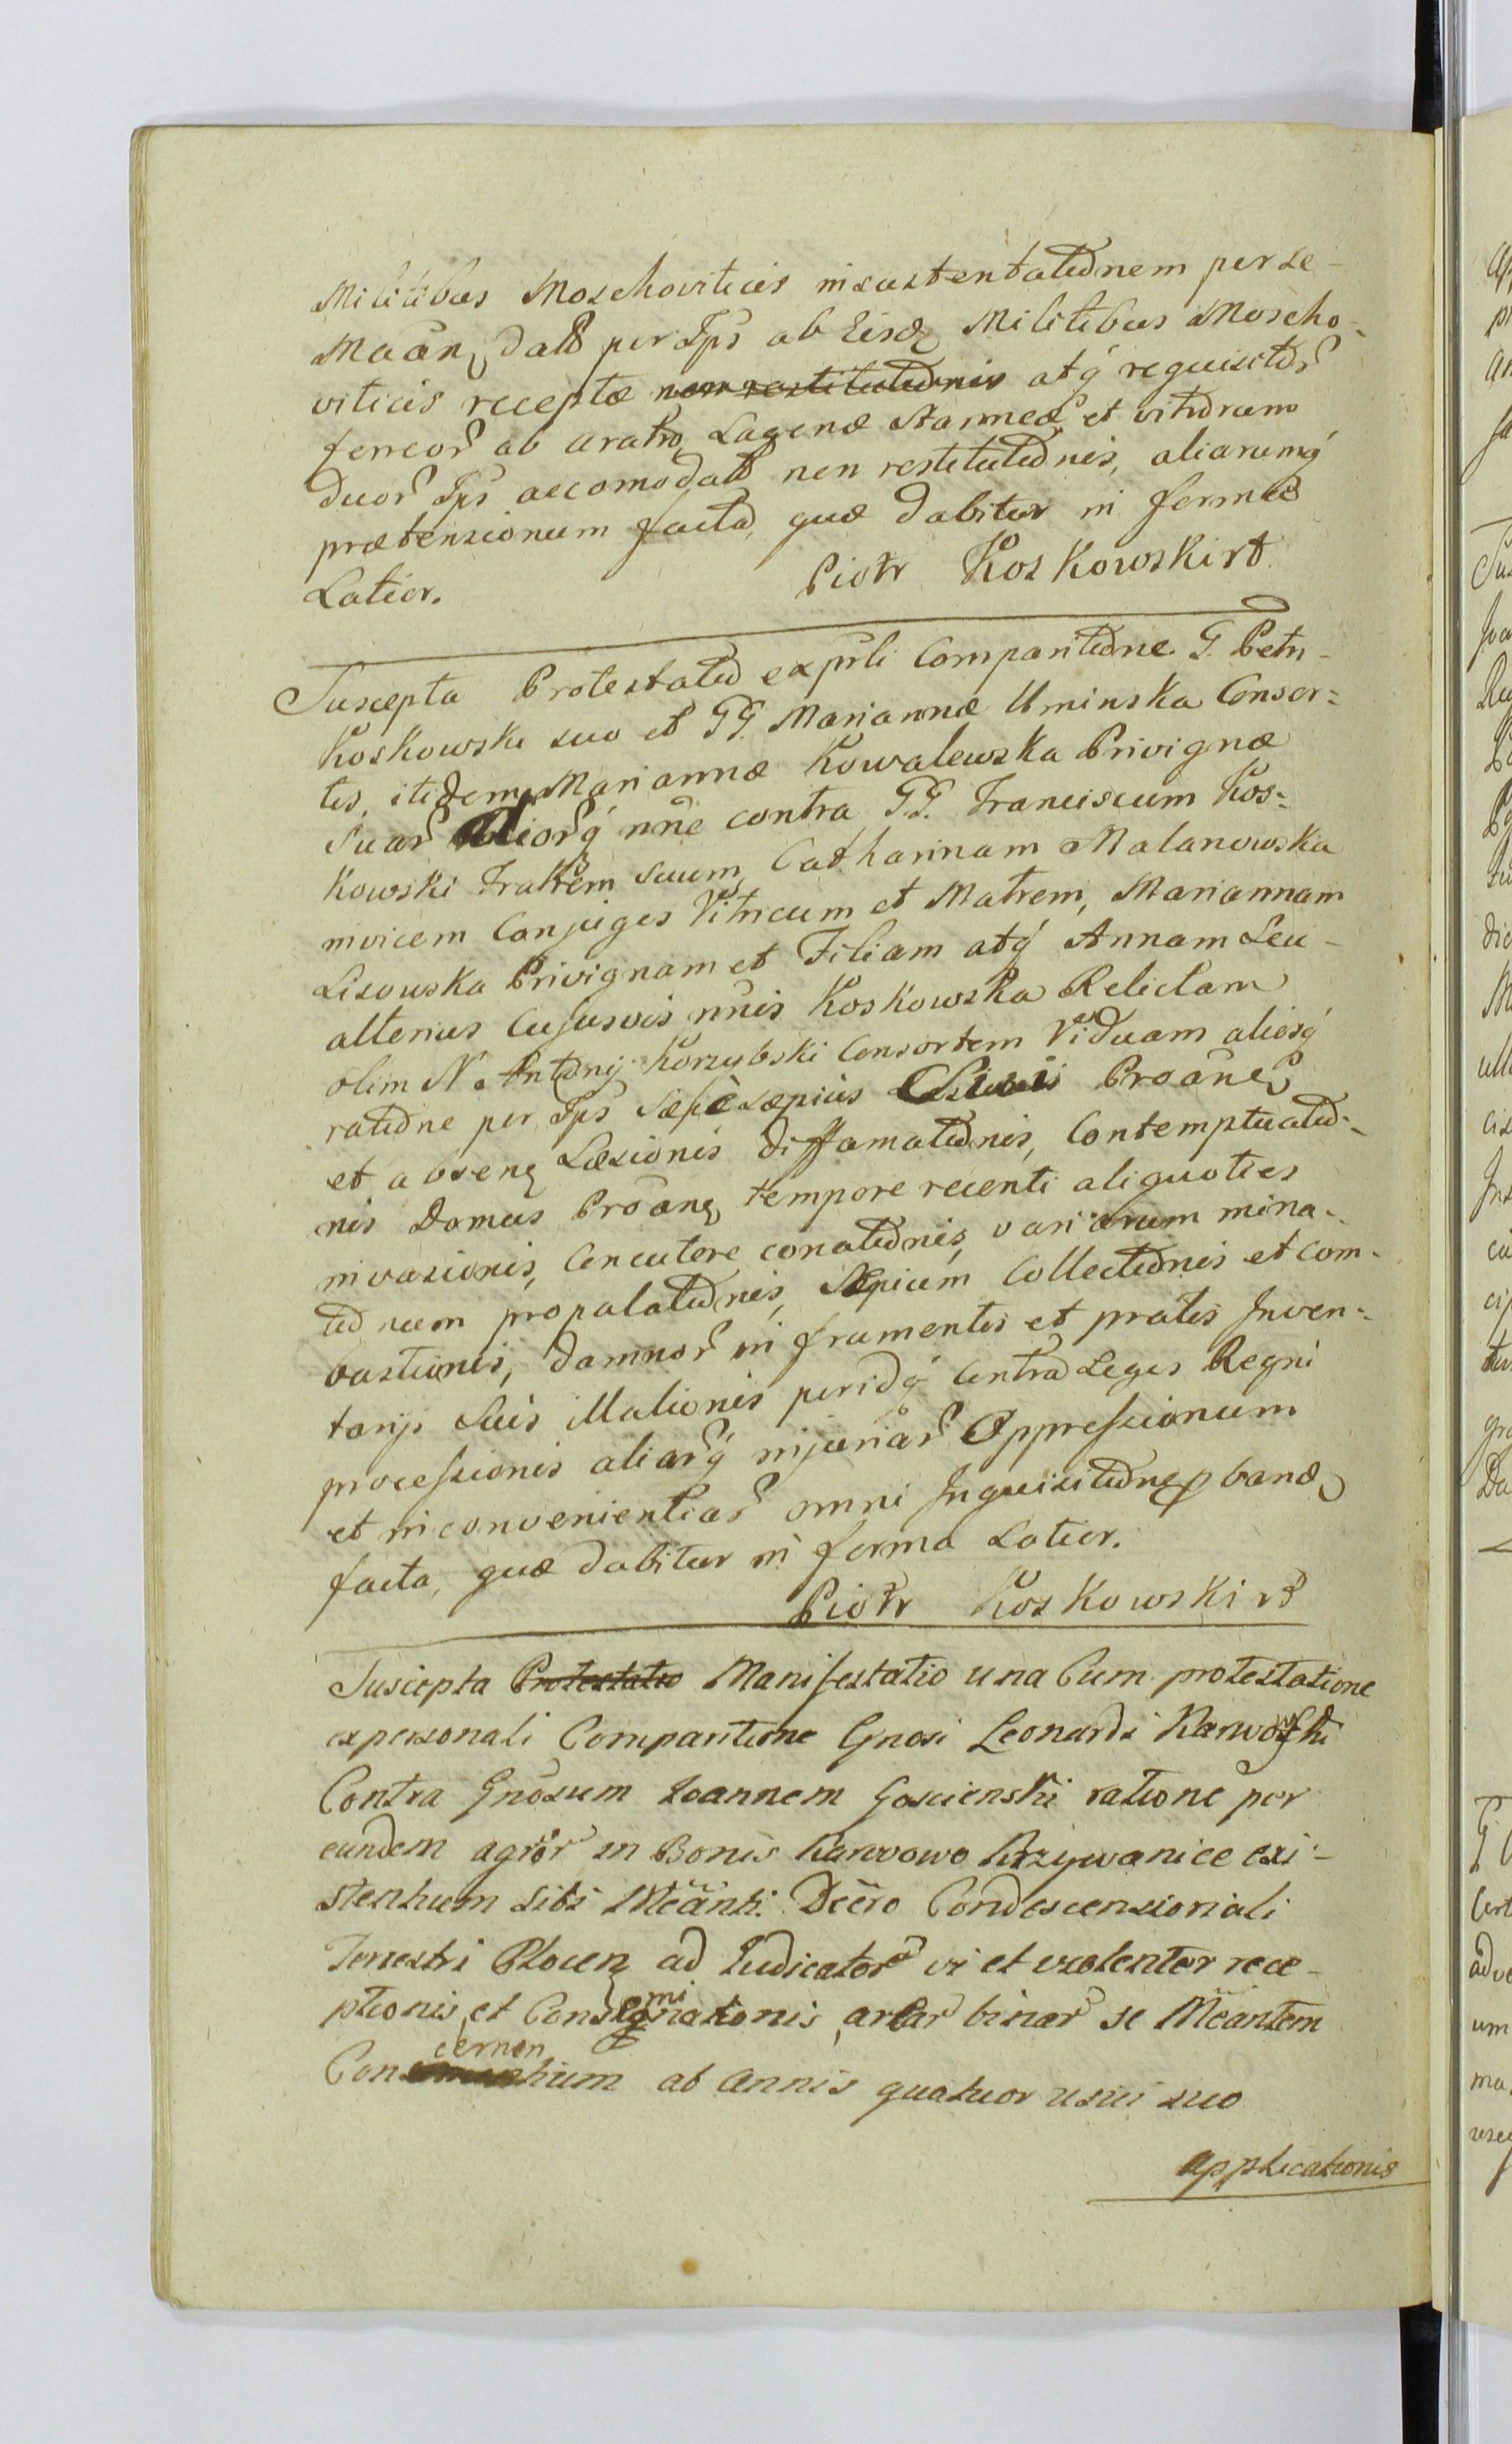 Militibus Moschoviticis in sustentationem per se
Mãan dato per Ips ab Eisd Militibus Moscho-
viticis receptæ non restitutionis atq́ requisitor
ferreor ab aratro, Lagenæ Stanneæ et vitrorum
duor Ips accomodato non restitutionis, aliarumq́
prætensionum facta, quæ dabitur in forma
Latior. Piotr Koskowski
Suscepta Protestatio ex prsli Comparitione G. Petri
Koskowski suo et GG. Mariannæ Uminska Consor=
tis, itidem Mariannæ Kowalewska Privignæ
Suar aliorq́ nñe contra GG. Franciscum Kos=
kowski Fratrem suum, Catharinam Malanowska
invicem Conjuges Vitricum et Matrem, Mariannam
Lisowska Privignam et Filiam atq́ Annam Seu
alterius Cujusvis nñis Koskowska Relictam
olim N. Antonij Korzybski Consortem Viduam aliosq́
ratione per Ips sæpè sæpius Proãne
et absen Læsionis diffamationis, Contemptuatio-
nis Domus Proãn tempore recenti aliquoties
invasionis, Concutere conationis, variarum mina-
tionum propalationis, Sæpium Collectionis et com-
bustionis, damnor in frumentis et pratis Inven=
tarijs Suis illationis peridq́ Contra Leges Regni
processionis aliarq́ injuriar Oppressionum
et inconvenientiar omni Inquisitione pband
facta, quæ dabitur in forma Latior.
Piotr Koskowski
Suscepta Protestatio Manifestatio una Cum protestatione
ex personali Comparitione Gnosi Leonardi Karwoski
Contra Gnosum Ioannem Goscienski ratione per
eundem agror in Bonis Karwowo Krzywanice exi-
stentium sibi Mcãnti Dcero Condescensionali
Terrestri Plocen ad Iudicator vi et violenter rece-
ptionis, et Consignationis, arear binar se Mcantem
cernen
Con tium ab Annis quatuor usui suo
applicationis